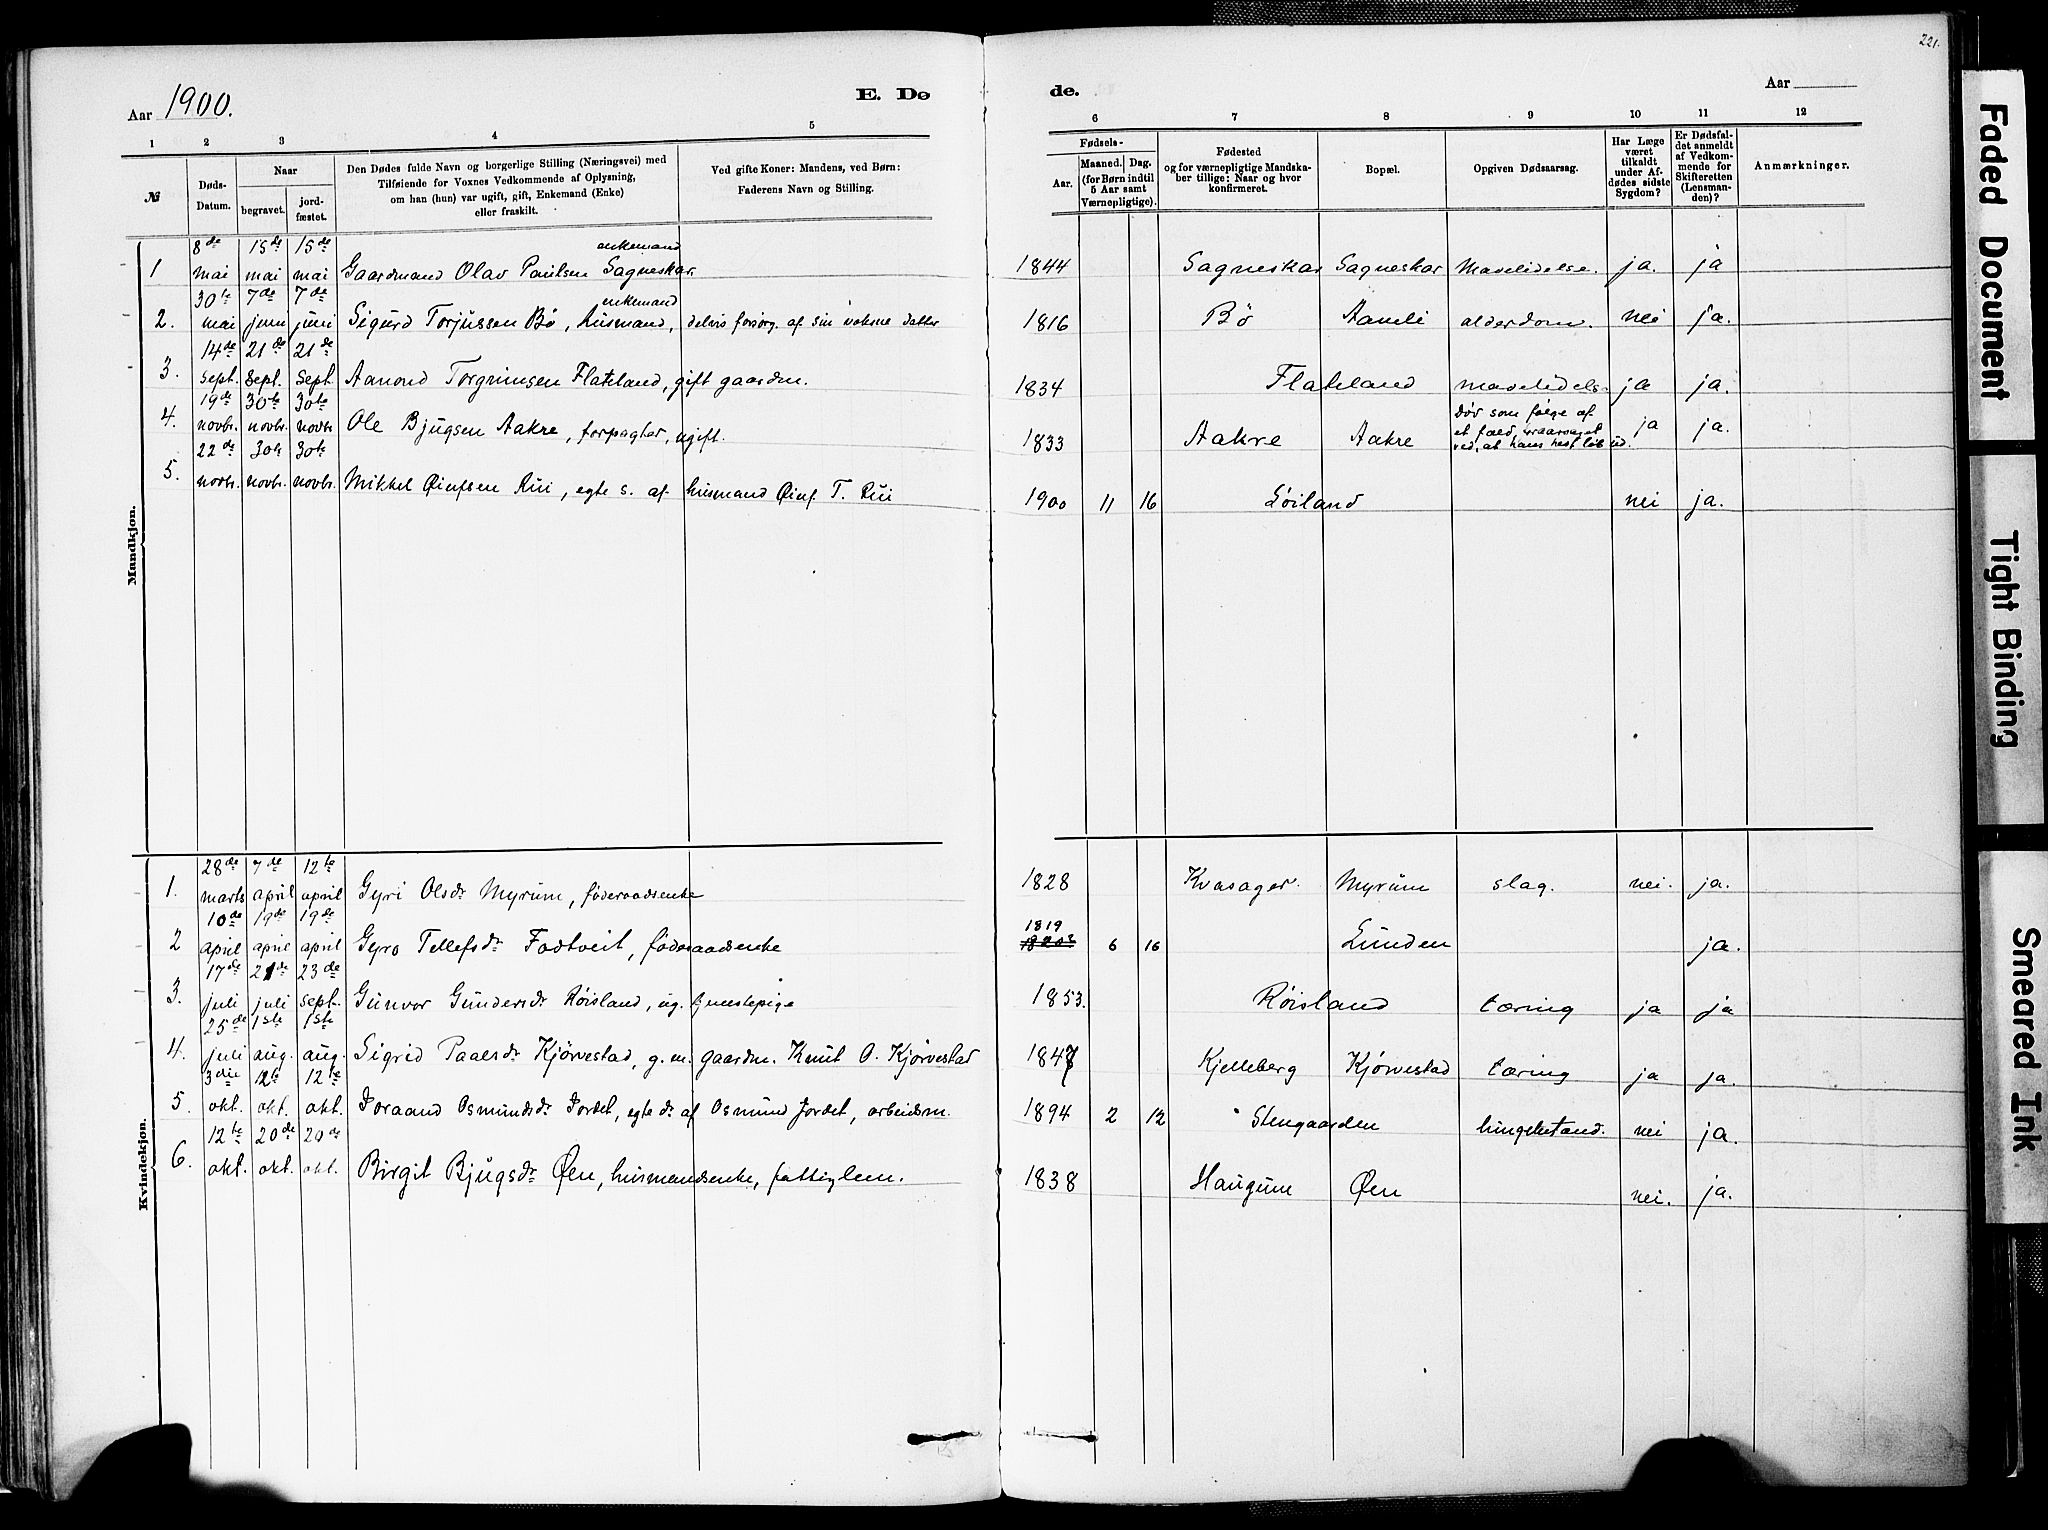 221.
Aar 1900.
E. Dø
de.
Aar
1 2 3 4 5 6 7 8 9 10 11 12
№
Døds-Datum.
Naar
begravet.
jord-fæstet.
Den Dødes fulde Navn og borgerlige Stilling (Næringsvei) med
Tilføiende for Voxnes Vedkommende af Oplysning,
om han (hun) var ugift, gift, Enkemand (Enke)
eller fraskilt.
Ved gifte Koner: Mandens, ved Børn:
Faderens Navn og Stilling.
Fødsels-
Aar.
Maaned. Dag.
(for Børn indtil
5 Aar samt
Værnepligtige).
Fødested
og for værnepligtige Mandska-
ber tillige: Naar og hvor
konfirmeret.
Bopæl.
Opgiven Dødsaarsag.
Har Læge
været
tilkaldt
under Af-
dødes sidste
Sygdom?
Er Dødsfal-
det anmeldt
af Vedkom-
mende for
Skifteretten
(Lensman-
den)?
Anmærkninger.
Mandkjøn.
8de 15de 15de enkemand
1 mai mai mai Gaardmand Olav Paulsen Sagneskar 1844 Sagneskar Sagneskar Mavelidelse. ja. ja
30te 7de 7de enkemand
2. mai juni juni Sigurd Torjussen Bö, husmand, delvis forsørg. af sin voksne datter 1816 Bö Aamli alderdom. nei ja.
14de 21de 21de
3. sept. sept. sept. Aanond Torgrimsen Flateland, gift gaardm. 1834 Flateland mavelidels. ja ja.
19de 30te 30te
4. novbr. novbr. novbr Ole Bjugsen Aakre, forpagter, ugift. 1833 Aakre Aakre
Döv som følge af
et fald, foraarsaget
ved, at hans hest løb ud. ja ja.
22de 30te 30te
5. novbr. novbr. novbr. Mikkel Øinfsen Rui, egte s. af husmand Øinf T. Rui 1900 11 16 Löiland nei ja.
Kvindekjøn.
28de 7de 12te
1. marts april april Gyri Olsdr Myrum, føderaadsenke 1828 Kvasager. Myrum slag. nei. ja.
10de 19de 19de
2 april april april Gyro Tellefsdr Fadtveit, føderaadsenke 1819 6 16 Lunden ja.
17de 21de 23de
3. juli juli sept. Gunvor Gundersdr Röisland, ug. tjenestepige 1853. Röisland tæring ja ja
25de 1ste 1ste
4. juli aug. aug. Sigrid Paalsdr Kjörvestad, g. m. gaardm. Knut O. Kjörvestad 1847 Kjelleberg Kjörvestad tæring ja ja.
3die 12te 12te
5. okt. okt. okt. Joraand Osmundsdr Jordet, egte dr. af Osmund Jordet, arbeidsm. 1894 2 12 Stengaarden lungebetænd. nei ja.
12te 20de 20de
6. okt. okt. okt. Birgit Bjugsdr Øen, husmandsenke, fattiglem. 1838 Haugum Øen nei. ja.
Faded Document
Tight Binding
Smeared Ink